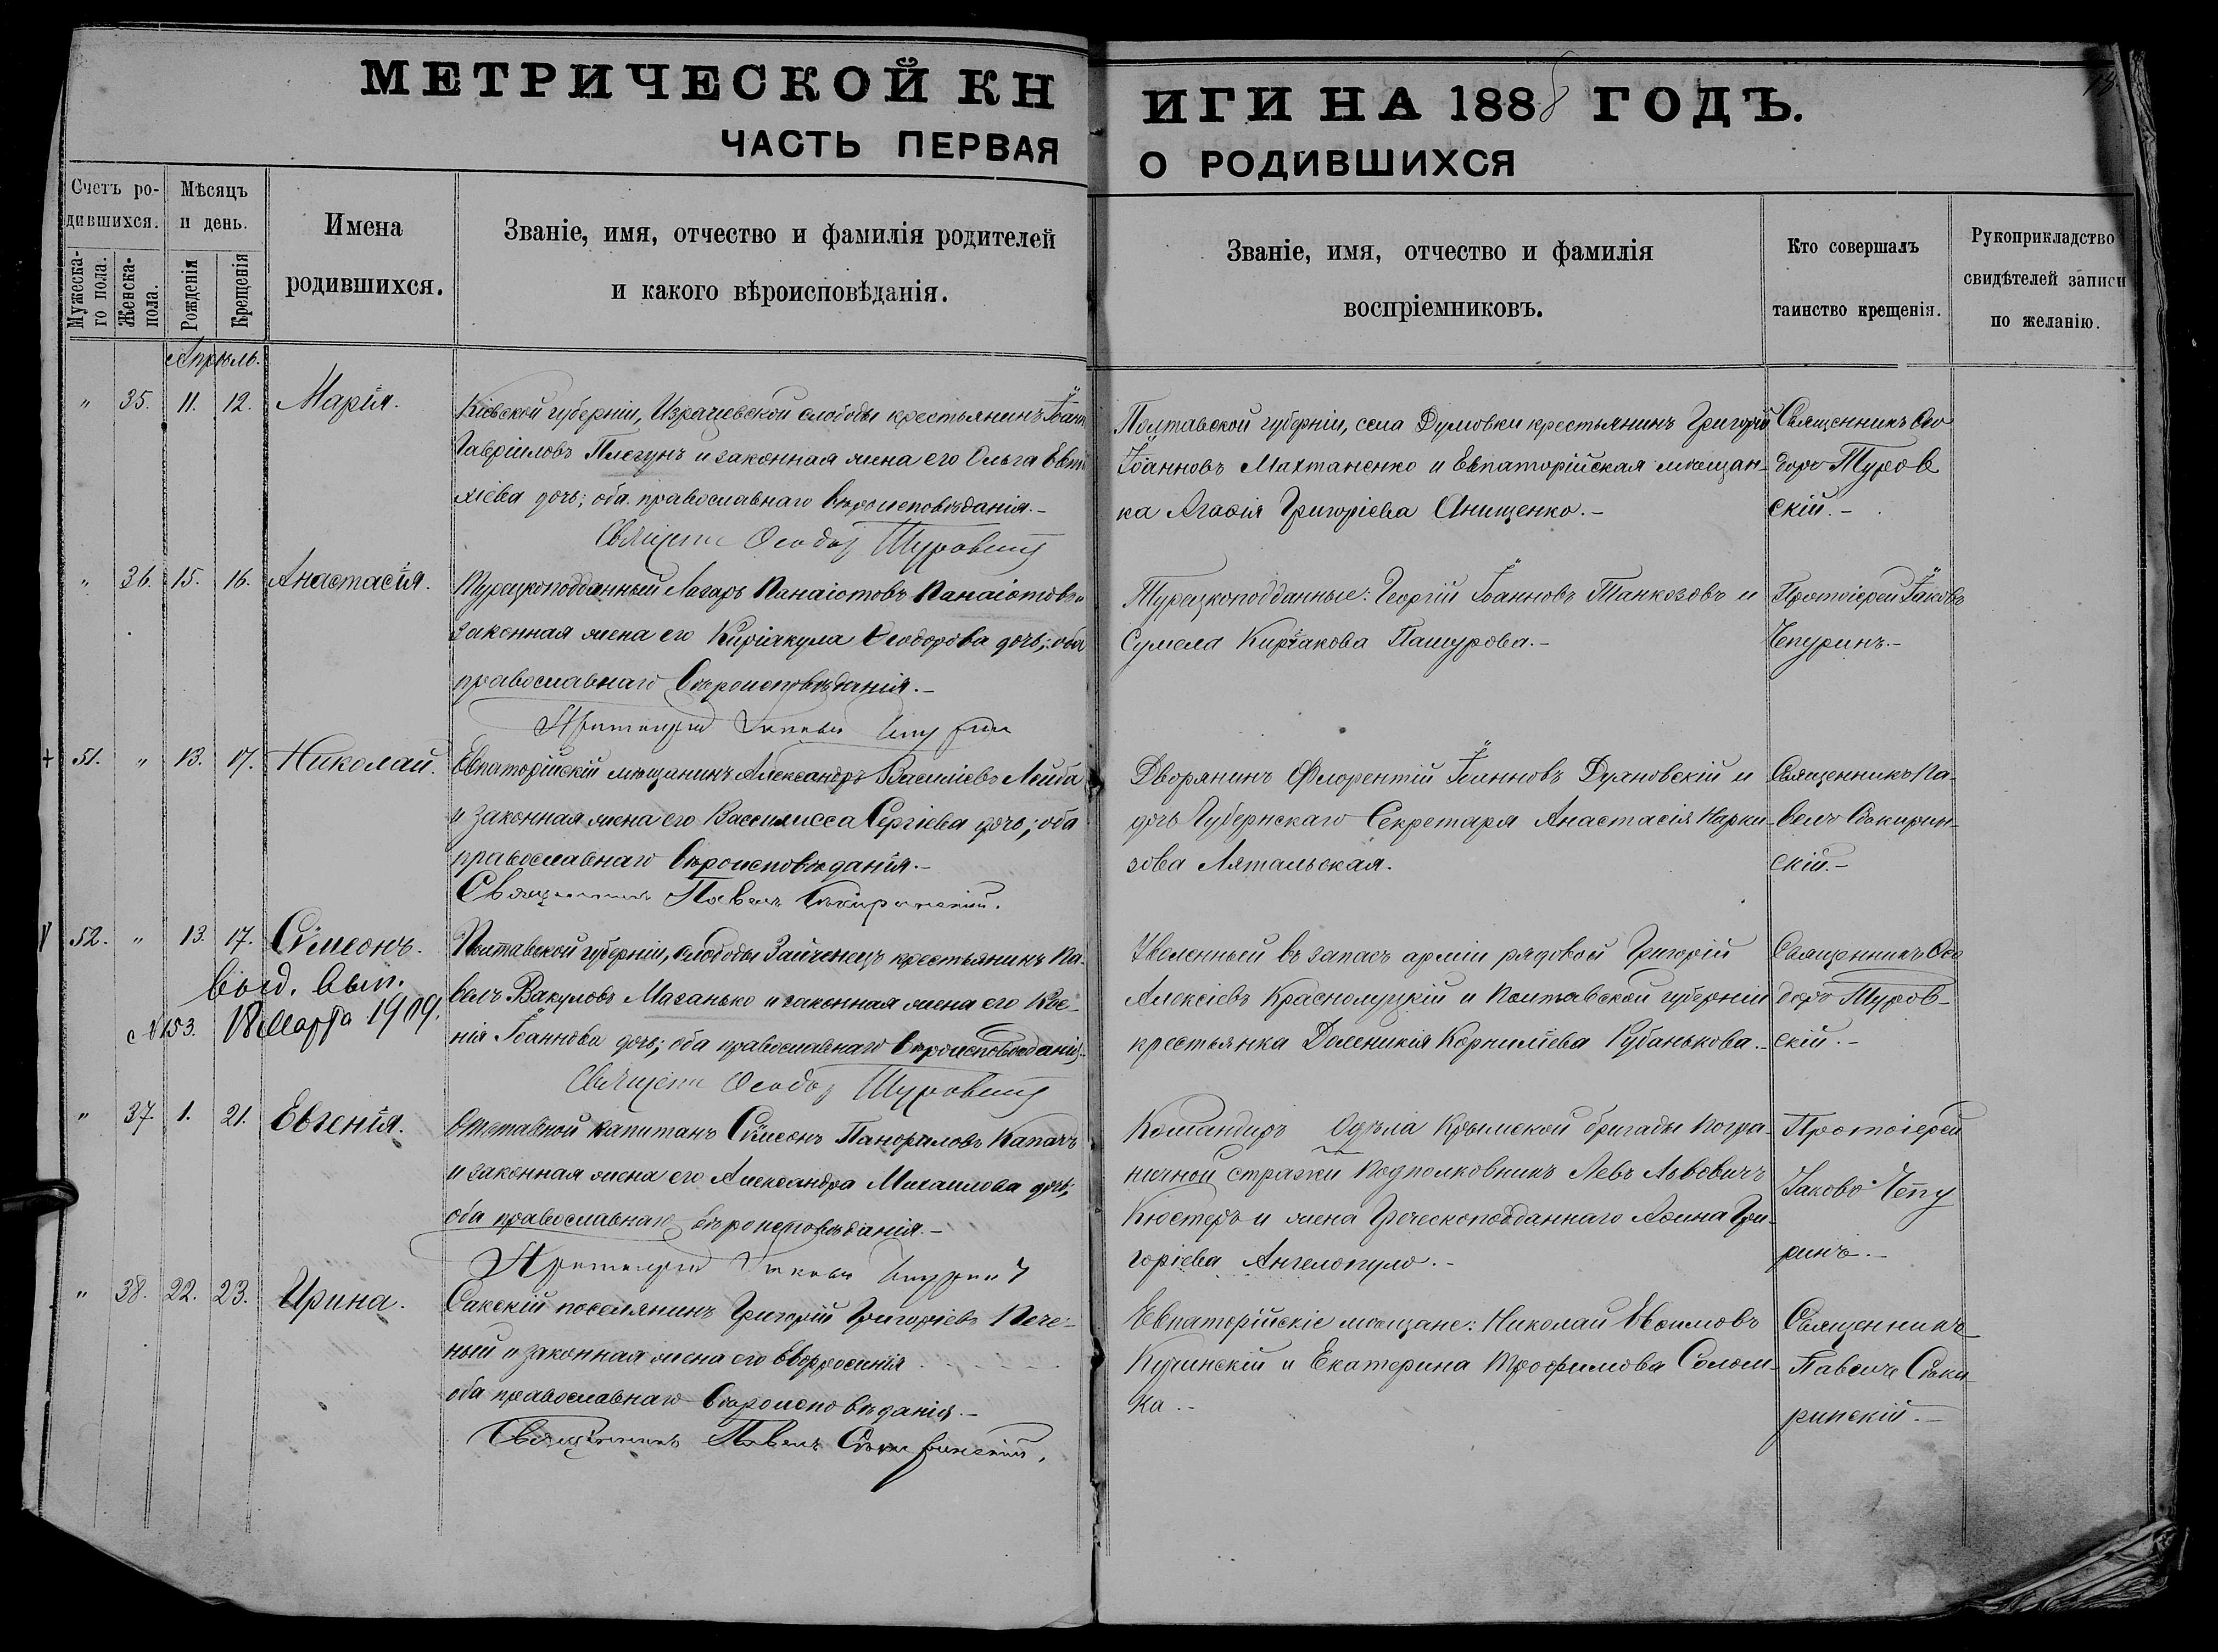 МЕТРИЧЕСКОЙ КНИГИ НА 1888 ГОДЪ.
ЧАСТЬ ПЕРВАЯ О РОДИВШИХСЯ
Счетъ ро-
дившихся.
Мужеска-
го пола.
Женска-
пола.
Мѣсяцъ
и день.
Рожденія
Крещенія
Имена
родившихся.
Званіе, имя, отчество и фамилія родителей
и какого вѣроисповѣданія.
Званіе, имя, отчество и фамилія
воспріемниковъ.
Кто совершалъ
таинство крещенія.
Рукоприкладство
свидѣтелей записи
по желанію.
Апрѣль.
" 35. 11. 12. Марія.
Кіевской губерніи, слободы крестьянинъ Іоаннъ
Гавріиловъ Плегунъ и законная жена его Ольга
дочь; оба православнаго вѣроисповѣданія.-
Священн Ѳеодоръ Туровскій
Полтавской губерніи, села Думовки крестьянинъ Григорій
Іоанновъ Махтаненко и Евпаторійская мѣщан-
ка Агаѳія Григоріева Онищенко.-
Священникъ Ѳео
доръ Туров
скій.-
" 36. 15. 16. Анастасія.
Турецкоподданный Лазарь Панаіотовъ Панаіотовъ и
законная жена его Киріакула Ѳеодорова дочь; оба
православнаго вѣроисповѣданія.-
Протоіерей Іаковъ Чепуринъ
Турецкоподданные: Георгій Іоанновъ Танкозовъ и
Сумела Киріакова Пашурова.-
Протоіерей Іаковъ
Чепуринъ.-
+ 51. " 13. 17. Николай.
Евпаторійскій мѣщанинъ Александръ Василіевъ Лейба
и законная жена его Вассилисса Сергіева дочь; оба
православнаго вѣроисповѣданія.-
Священникъ Павелъ Сокиринскій.
Дворянинъ Флорентій Іоанновъ Дуяновскій и
дочь Губернскаго Секретаря Анастасія Нарки-
зова Лятальская.
Священникъ Па-
велъ Сокирин-
скій.-
52. " 13. 17. Сѵмеонъ.
выд. вып.
с №153. 18 Марта 1909.
Полтавской губерніи, слободы Зайченецъ крестьянинъ Па-
велъ Вакуловъ Маганько и законная жена его Ксе-
нія Іоаннова дочь; оба православнаго вѣроисповѣданія.
Священн Ѳеодоръ Туровскій
Уволенный въ запасъ арміи рядовой Григорій
Алексіевъ Краснолуцкій и Полтавской губерніи
крестьянка Домникія Корниліева Рубанькова.-
Священникъ Ѳео
доръ Туров-
скій.-
" 37. 1. 21. Евгенія.
Отставной капитанъ Сѵмеонъ Капачъ
и законная жена его Александра Михаилова дочь,
оба православнаго вѣроисповѣданія.-
Протоіерей Іаковъ Чепуринъ
Командиръ Отдѣла Крымской бригады погра-
ничной стражи Подполковникъ Левъ Львовичъ
Кюстеръ и жена Греческоподданнаго Аѳина Гри-
горіева Ангелопуло.-
Протоіерей
Іаковъ Чепу
ринъ.-
" 38. 22. 23. Ирина.
Сакскій поселянинъ Григорій Григоріевъ Пече-
ный и законная жена его Евфросинія
оба православнаго вѣроисповѣданія.-
Священникъ Павелъ Сокиринскій.
Евпаторійскіе мѣщане: Николай Евѳимовъ
Кучинскій и Екатерина Трофимова Соломи-
ка.-
Священникъ
Павелъ Соки
ринскій.-